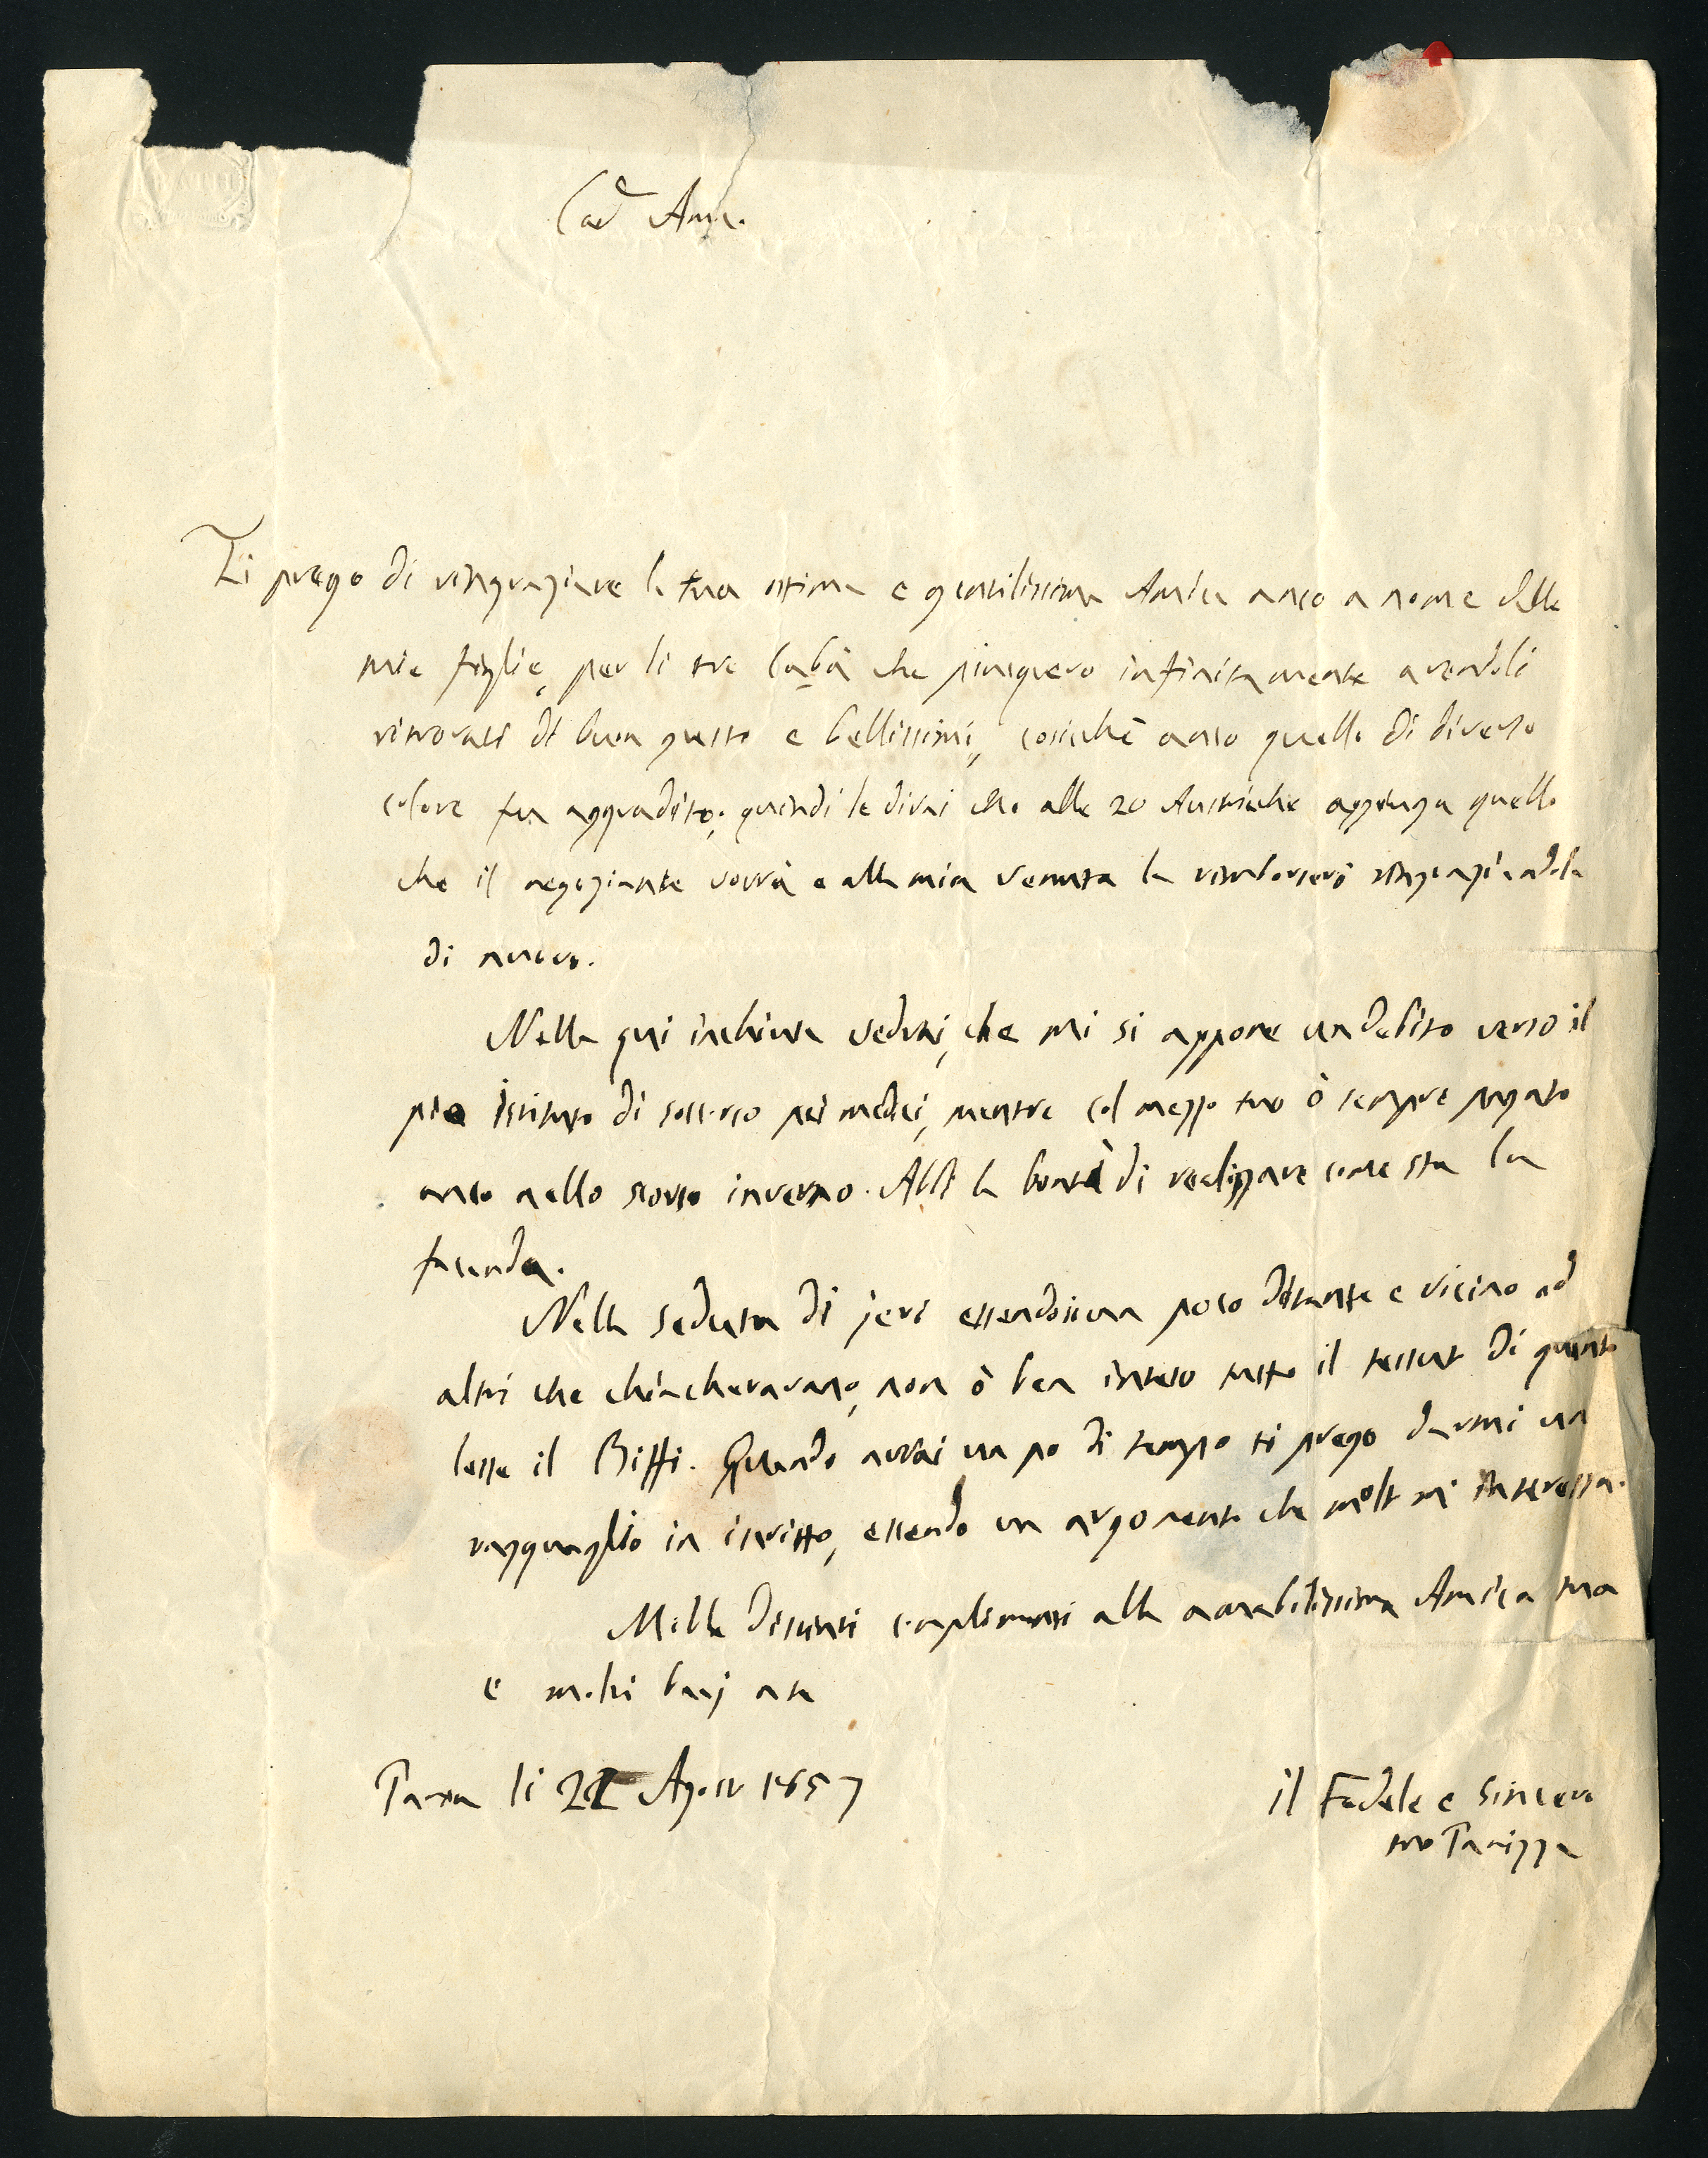 Car.º Am.
Ti prego di ringraziare la tua ottima e gentilissima Amica anco a nome delle
mie figlie, per li tre che piacquero infinitamente avendoli
ritrovati di buon gusto e bellissimi, cosichè anco quello di diverso
colore fu aggradito; quindi le dirai che alle 20 Austriache aggiunga quello
che il negoziante vorrà e alla mia venuta la rimborserò ringraziandola
di nuovo.
Nella qui inchiusa vedrai, che mi si appone un debito verso il
pio istituto di soccorso pei medici, mentre col mezzo tuo ò sempre pagato
anco nello scorso inverno. Abbi la bontà di verificare come sta la
facenda.
Nella seduta di jeri essendo un poco distante e vicino ad
altri che chiacheravano, non ò ben inteso tutto il di quanto
lesse il Biffi. Quando avrai un po di tempo ti prego darmi un
ragguaglio in iscritto, essendo un argomento che molto mi interessa.
Mille distinti complimenti alla amabilissima Amica tua
e molti baci a te
Pavia li Agosto 1857
il Fedele e Sincero
tuo Panizza